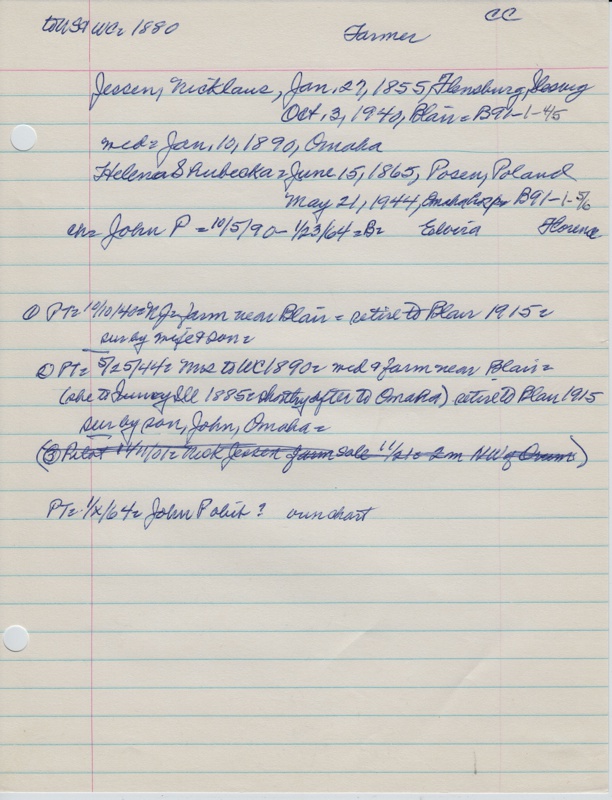 to USA WC= 1880 Farmer CC
Jessen, Nicklaus, Jan. 27, 1855, Flensburg,
Oct. 3, 1940, Blair = B91-1-4/5
md = Jan. 10, 1890, Omaha
Helena = June 15, 1865, Posen, Poland
May 21, 1944, Omaha B91-1-5/6
ch= John P = 10/5/90 - 1/23/64 = B= Elvira Florence
① PT= 10/10/40 = NJ = farm near Blair = retire to Blair 1915 =
sur by wife & son =
② PT= 5/25/44 = Mrs to WC 1890 = md & farm near Blair =
(she to Ill 1885 = shortly after to Omaha) retire to Blair 1915
sur by son, John, Omaha =
(③ Pilot = Nick Jessen farm sale 11/21 = 2 m NW of Orum)
PT= 1/x/64 = John P obit? own chart